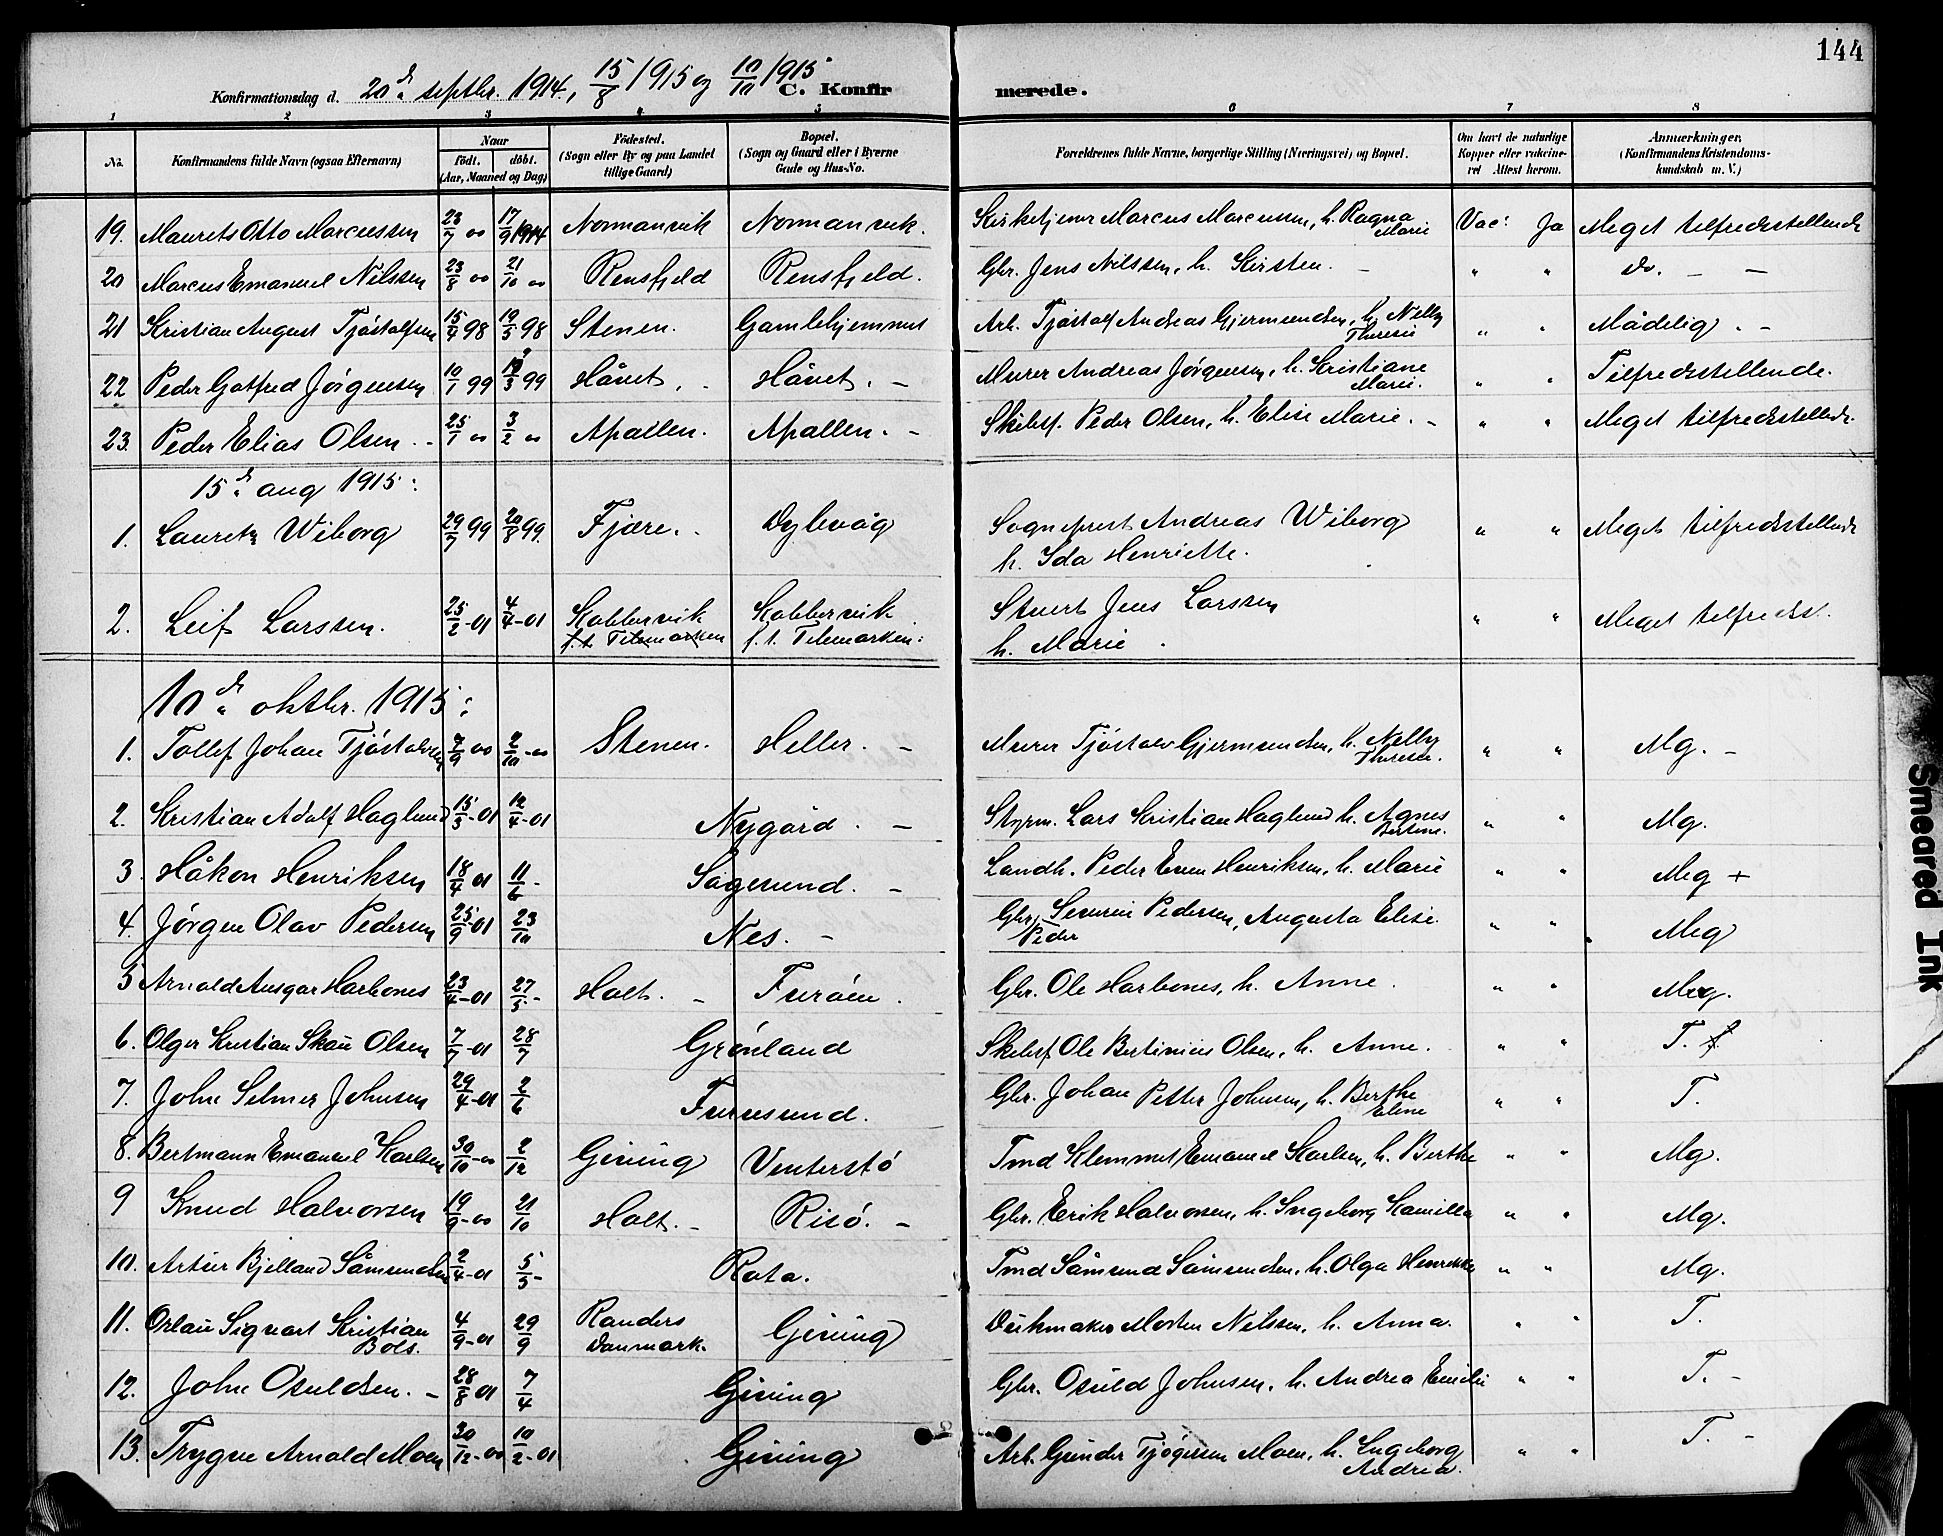 144
Konfirmationsdag d. 20de septbr. 1914, 15/8 1915 og 10/10 1915 C. Konfirmerede.
1 2 3 4 5 6 7 8
No. Konfirmandens fulde Navn (ogsaa Efternavn) Naar födt. döbt. (Aar, Maaned og Dag) Födested. (Sogn eller By og paa Landet tillige Gaard) Bopæl. (Sogn og Gaard eller i Byerne Gade og Hus-No. Forældrenes fulde Navne, borgerlige Stilling (Næringsvei) og Bopæl. Om havt de naturlige Kopper eller vakcineret Attest herom. Anmærkninger. (Konfirmandens Kristendomskundskab m. V.)
19. Maurets Otto Marcussen 23/7 00 17/9 1914 Normanvik Normanvik. Kirketjener Marcus Marcussen, h. Ragna Marie Vac: Ja Meget tilfredsstellende
20 Marcus Emanuel Nilssen 23/8 00 21/10 00 Rensfjeld Rensfjeld. Gbr. Jens Nilssen, h. Kirsten. - " " do. - -
21 Kristian August Tjöstalfsen 15/4 98 19/5 98 Stenen. Gamlehjemmet Arb. Tjöstalf Andreas Gjermundsen, h. Nelly Theresie " " Mådelig. -
22 Peder Gotfred Jörgensen 10/1 99 19/3 99 Håvet. - Håvet. - Murer Andreas Jörgensen, h. Kristiane Marie. " " Tilfredsstellende.
23. Peder Elias Olsen. - 25/1 00 3/2 00 Apallen. Apallen. - Skibsf. Peder Olsen, h. Elise Marie. - " " Meget tilfredsstellende.
15de aug 1915:
1. Lauretz Wiborg 29/7 99 20/8 99. Fjære. Dybvåg Sogneprest Andreas Wiborg h. Ida Henriette. " " Meget tilfredsstellende
2. Leif Larssen. 25/2-01 4/4-01 Kabbervik f. t. Telemarken Kabbervik f. t. Telemarken: Stuert Jens Larssen h. Marie. " " Meget tilfredsst.
10de oktbr. 1915:
1. Tollef Johan Tjöstalvsen 7/9 00 2/10-00 Stenen. Heller. - Murer Tjöstalv Gjermundsen, h. Nelly Theresie. " " Mg. -
2. Kristian Adolf Haglund 15/3-01 12/4-01 Nygård. - Styrm. Lars Kristian Haglund h. Agnes Bertine. " " Mg.
3. Håkon Henriksen 18/4 01 11/6- Sagesund. - Landh. Peder Even Henriksen, h. Marie " " Meg +
4. Jörgen Olav Pedersen 25/9-01 23/10 Nes. - Gbr. Peder Severin Pedersen, Augusta Elise. " " Meg
5 Arnold Ansgar Harbones 23/4-01 27/5- Holt. - Furöen. Gbr. Ole Harbones, h. Anne. " " Meg.
6. Olger Kristian Skau Olsen 7/7-01 28/7 Grönland Skibsf. Ole Bertinius Olsen, h. Anne. " " T.
7. John Selmer Johnsen 29/4-01 2/6 Furuesund. Gbr. Johan Petter Johnsen, h. Berthe Eline " " T.
8. Bertmann Emanuel Karlsen 30/10-00 2/12 Gjeving Venterstö Tmd Klemmet Emanuel Karlsen, h. Berthe " " Mg.
9 Knud Halvorsen 19/9-00 21/10 Holt. - Risö. - Gbr. Erik Halvorsen, h. Ingeborg Kamilla " " Mg.
10. Artur Bjelland Såmundsen 2/4-01 5/5- Rota. Tmd Såmund Såmundsen, h. Olga Henrikke " " Mg.
11. Orlau Sigvart Kristian Bols. 4/9-01 29/9 Randers Danmark. Gjeving Dukmaker Morten Nilssen, h. Anna. " " T.
12. John Osuldsen. - 28/8 01 7/4 Gjeving Gbr. Osuld Johnsen, h. Andrea Emilie " " T. -
13. Trygve Arnold Moen 20/12-00 10/2-01 Gjeving Arb. Gunder Tjögersen Moen, h. Ingeborg Andrea. " " T. -
Smeared Ink